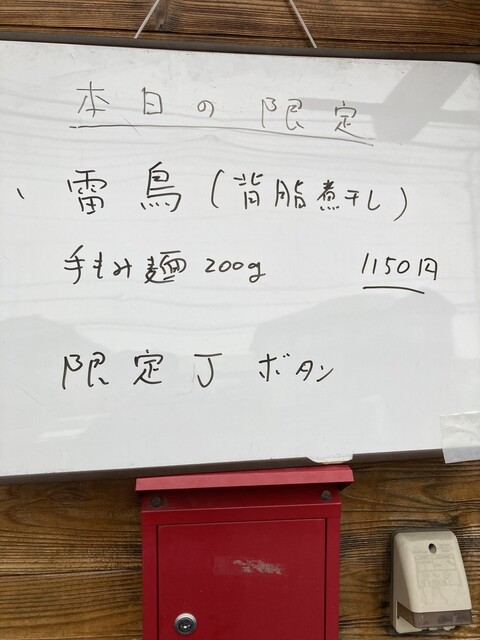 本日の限定
雷鳥(背脂煮干し)
手もみ麺200g 1150円
限定J ボタン